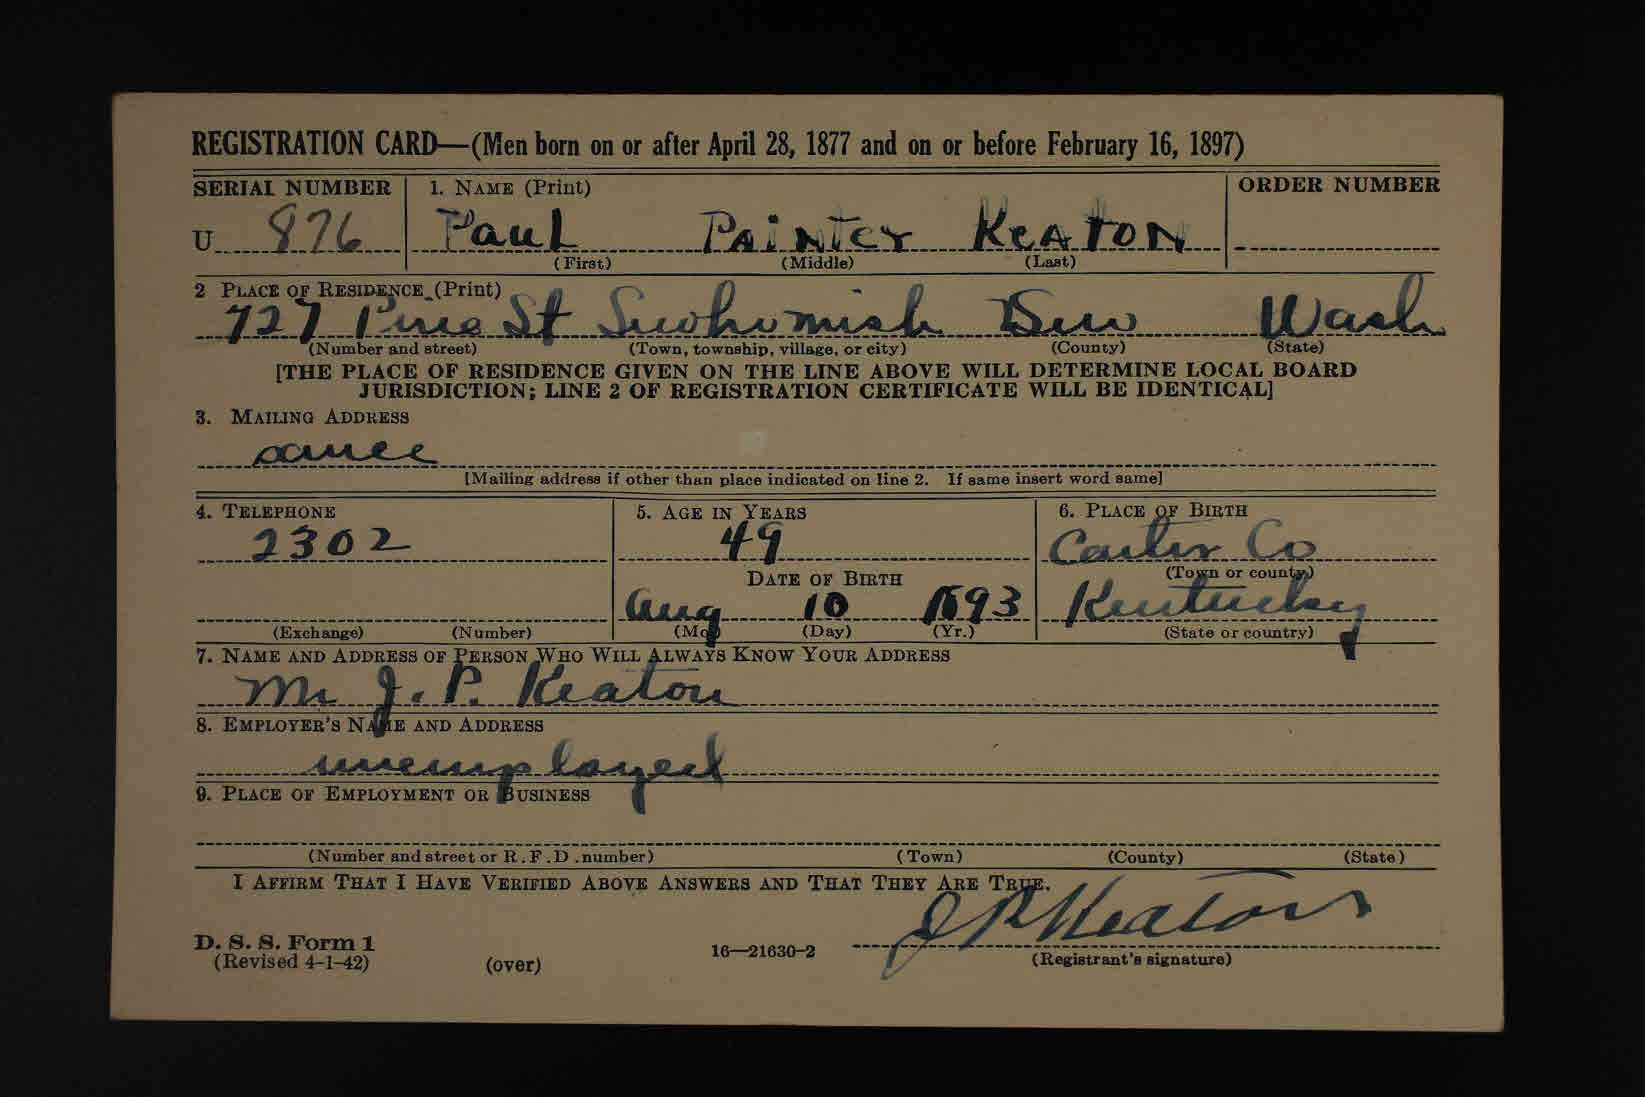 REGISTRATION CARD—(Men born on or after April 28, 1877 and on or before February 16, 1897)
SERIAL NUMBER 1. NAME (Print) ORDER NUMBER
U 876 Paul Painter Keaton
(First) (Middle) (Last)
2 PLACE OF RESIDENCE (Print)
727 Pine St Snohomish Sno Wash
(Number and street) (Town, township, village, or city) (County) (State)
[THE PLACE OF RESIDENCE GIVEN ON THE LINE ABOVE WILL DETERMINE LOCAL BOARD
JURISDICTION; LINE 2 OF REGISTRATION CERTIFICATE WILL BE IDENTICAL]
3. MAILING ADDRESS
same
[Mailing address if other than place indicated on line 2. If same insert word same]
4. TELEPHONE 5. AGE IN YEARS 6. PLACE OF BIRTH
2302 49 Carter Co
DATE OF BIRTH (Town or county)
Aug 10 1893 Kentucky
(Exchange) (Number) (Mo.) (Day) (Yr.) (State or country)
7. NAME AND ADDRESS OF PERSON WHO WILL ALWAYS KNOW YOUR ADDRESS
J. P. Keaton
8. EMPLOYER'S NAME AND ADDRESS
unemployed
9. PLACE OF EMPLOYMENT OR BUSINESS
(Number and street or R.F.D. number) (Town) (County) (State)
I AFFIRM THAT I HAVE VERIFIED ABOVE ANSWERS AND THAT THEY ARE TRUE.
J P Keaton
D. S. S. Form 1
(Revised 4-1-42) (over) 16—21630-2 (Registrant's signature)